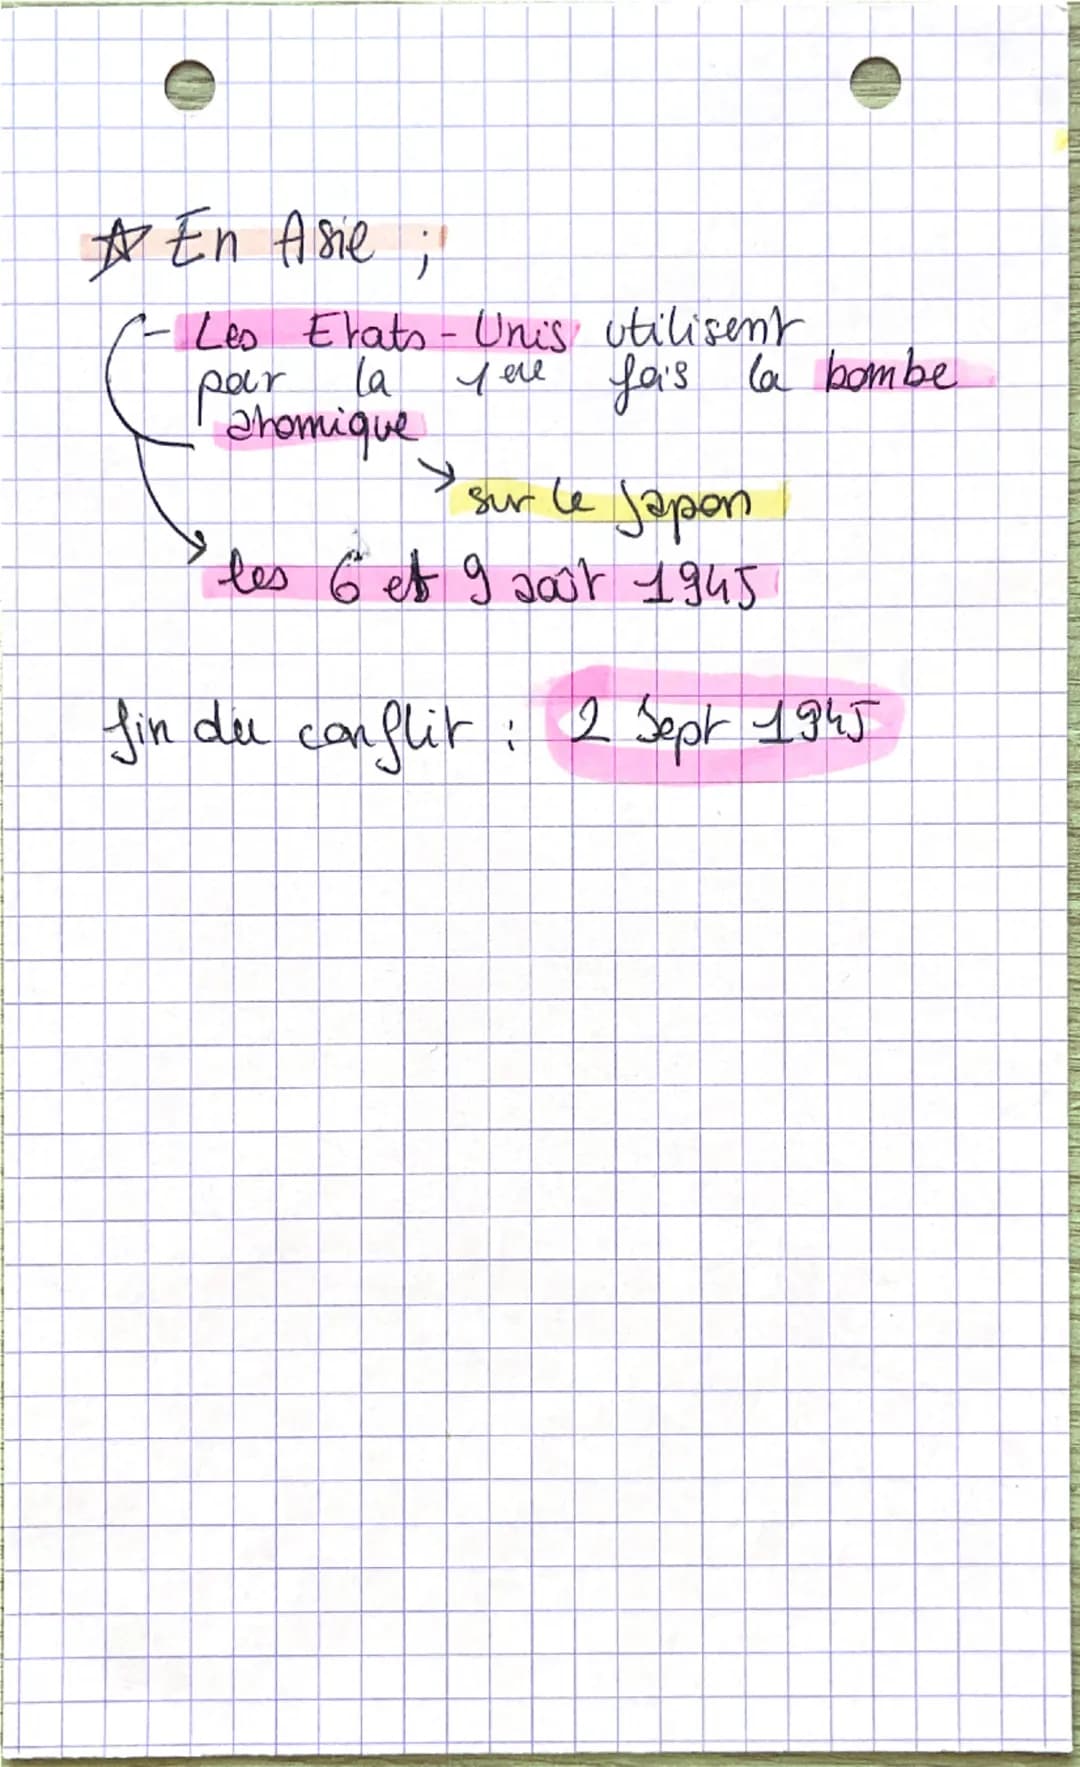 ☆ En Asie ;
- Les Etats-Unis utilisent
par la 1ere fois la bombe
atomique
→ sur le Japon
→ les 6 et 9 août 1945
fin du conflit : 2 Sept 1945